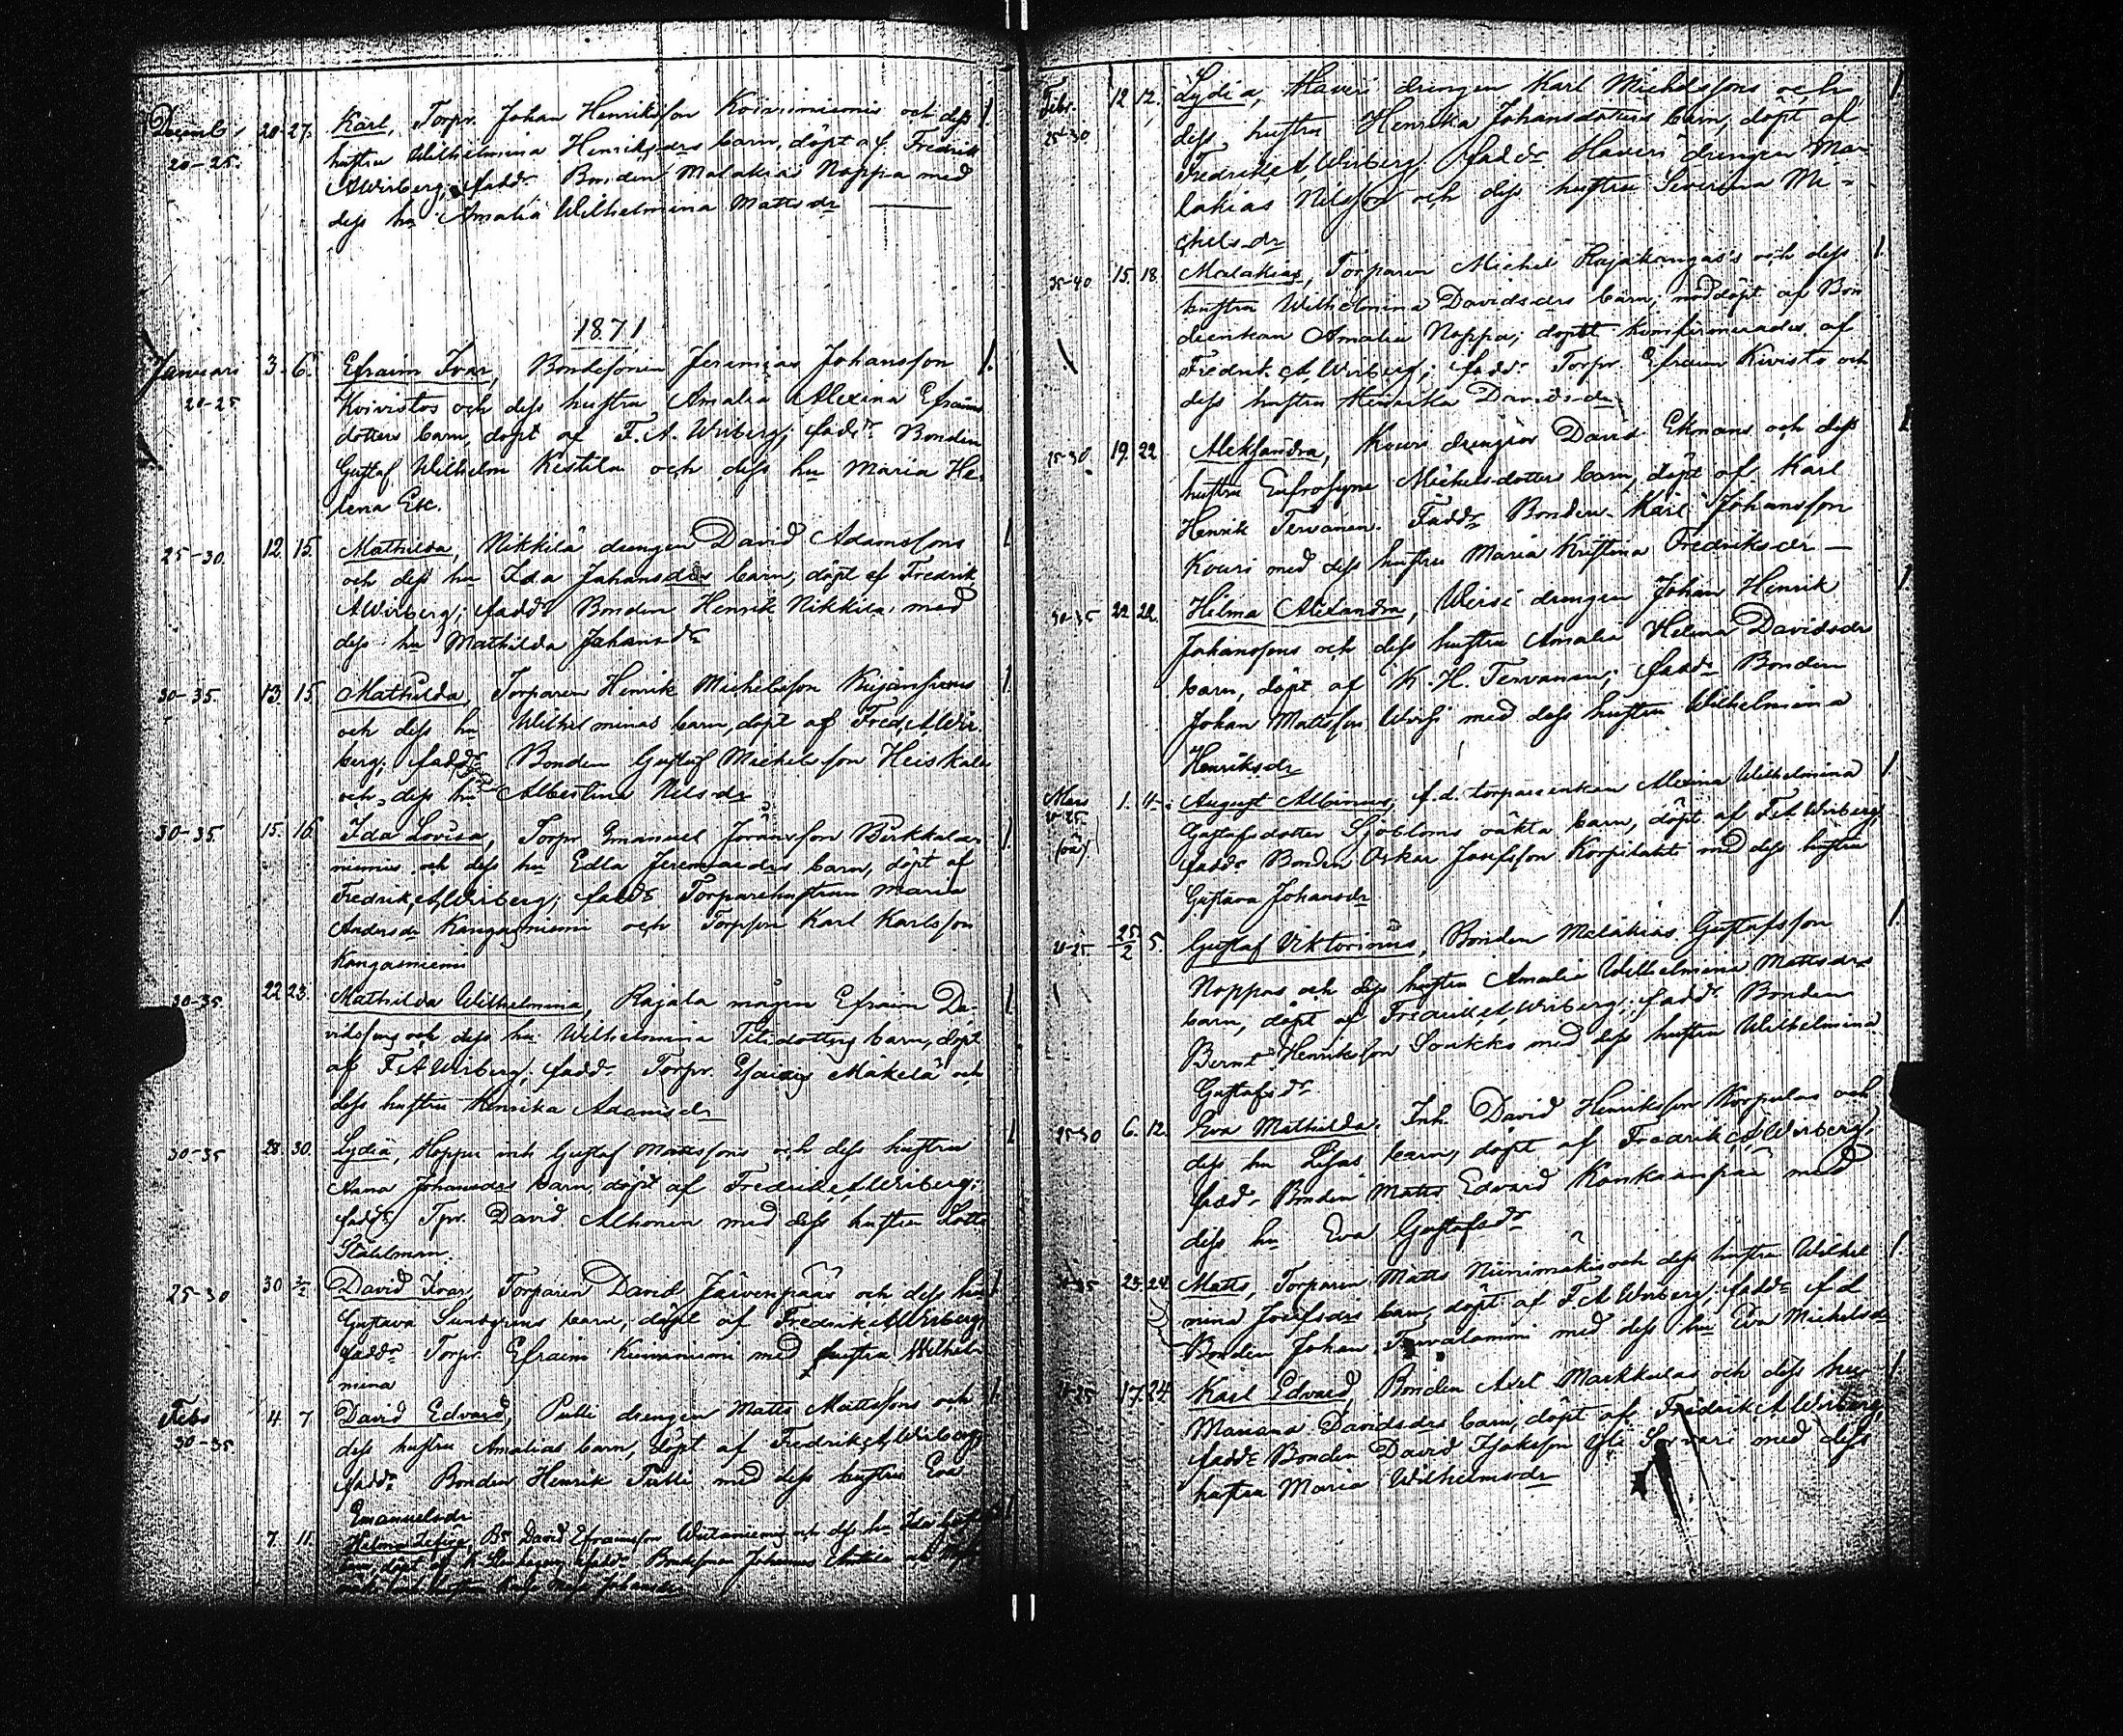 Decembr 20 27. Karl, Torpr. Johan Henriksson Koivuniemis och dess 1.
20-25. hustru Wilhelmina Henriksdrs barn, döpt af Fredrik
A Wirberg; faddr Bonden Malakias Noppa med
dess hu Amalia Wilhelmina Mattsdr
1871
Januari 3. 6. Efraim Ivar, Bondesonen Jeremias Johansson 1.
20-25 Koivistos och dess hustru Amalia Alexina Efraims
dotters barn, döpt af F. A. Wirberg; faddr. Bonden
Gustaf Wilhelm Kestila och dess hu Maria He-
lena Ek.
25-30. 12. 15. Mathilda, Nikkilä drengen David Adamssons 1
och dess hu Ida Johansdrs barn, döpt af Fredrik
A Wirberg; faddr Bonden Henrik Nikkilä med
dess hu Mathilda Johansdr
30-35. 13. 15. Mathilda, Torparen Henrik Michelsson 1
och dess hu Wilhelminas barn, döpt af Fred. A Wir
berg; faddr Bonden Gustaf Michelsson Heiskala
och dess hu Albertina Nilsdr
30-35 15. 16. Ida Lovisa, Torpr Emanuel Göransson Pirkkala- 1.
niemis och dess hu Edla Jeremiaedrs barn, döpt af
Fredrik A Wirberg; faddr. Torparehustrun Maria
Andersdr Kangasniemi och Torppn Karl Karlsson
Kangasniemi
30-35 22 23. Mathilda Wilhelmina, Rajala mågen Efraim Da- 1
vidssons och dess hu Wilhelmina dotters barn, döpt
af F A Wirberg; faddr. Torpr. Esaias Mäkelä och
dess hustru Henrika Adamsdr
30-35 28. 30. Lydia, Hoppu inh Gustaf Mattssons och dess hustru 1
Anna Johansdrs barn, döpt af Fredrik A Wirberg;
faddr Tpr. David Alhonen med dess hustru Lotta
Ståhlman.
25-30 30 2/2 David Ivar, Torparen David Järvenpääs och dess hu 1
Gustava Sundgrens barn, döpt af Fredrik A Wirberg
faddr Torpr. Efraim Kuiviniemi med hustru Wilhel
mina
Febr 4. 7 David Edvard, Pulli drengen Matts Mattssons och 1.
30-35 dess hustru Amalias barn, döpt af Fredrik A Wirberg
faddr Bonden Henrik Pulli med dess hustru Eva
Emanuelsdr
7. 11. Helma Sefira, Br. David Efraimsson och dess hu Ida
barn, döpt af K faddr Bondesonen Johannes
Maja Johansdr
Febr. 12 12. Lydia, Haveri drengen Karl Michelssons och 1
25-30 dess hustru Henrika Johansdotters barn, döpt af
Fredrik A. Wirberg, faddr Haveri drengen Ma-
lakias Nilsson och dess hustru Severina Mi-
chelsdr
35-40 15. 18. Malakias, Torparen Michel Rajakangas's och dess 1.
hustru Wilhelmina Davidsdrs barn, nöddöpt af Bon
deenkan Amalia Noppa; dopet konfirmerades af
Fredrik A. Wirberg; faddr Torpr. Efraim Kivistö och
dess hustru Henrika Davidsdr
25-30 19. 22 Aleksandra, Kouri drengen David Ekmans och dess 1
hustru Eufrosyne Michelsdotters barn, döpt af Karl
Henrik Tervanen. Faddr Bonden Karl Johansson
Kouri med dess hustru Maria Kristina Fredriksdr
30-35 22 22. Hilma Alexandra, Wirsi drengen Johan Henrik 1.
Johanssons och dess hustru Amalia Helena Davidsdr
barn, döpt af K. H. Tervanen; faddr Bonden
Johan Mattsson Wirsi med dess hustru Wilhelmina
Henriksdr
Mars 1. August Albinus, f.d. torpareenkan Alexina Wilhelmina 1.
20-25. Gustafsdotter Sjöbloms oäkta barn, döpt af F A Wirberg;
(oä) faddr Bonden Oskar Josefsson Korpilahti med dess hustru
Gustava Johansdr
20-25 25/2 5. Gustaf Viktorinus, Bonden Malakias Gustafsson 1.
Noppas och dess hustru Amalia Wilhelmina Mattsdrs
barn, döpt af Fredrik A Wirberg; faddr. Bonden
Bernt Henriksson Soukko med dess hustru Wilhelmina
Gustafsdr
25-30 6. 12. Eva Mathilda, Inh. David Henriksson Korpulas och
dess hu Lisas barn, döpt af Fredrik A Wirberg;
faddr Bonden Matts Edvard Kankaanpää med
dess hu Eva Gustafsdr
23. 24. Matts, Torparen Matts Niinimäkis och dess hustru Wilhel 1.
mina Josefsdrs barn, döpt af F A Wirberg; faddr f d
Bonden Johan med dess hu Eva Michelsdr
17. 24. Karl Edvard, Bonden Axel Markkulas och dess hu 1.
Mariana Davidsdrs barn, döpt af Fredrik A Wirberg,
faddr Bonden David Isaksson Yli med dess
hustru Maria Wilhelmsdr